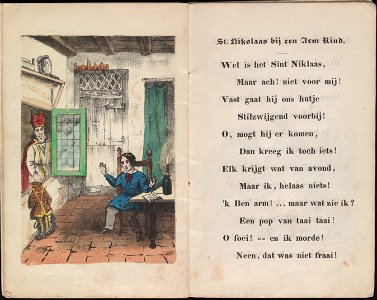 St. Nikolaas bij een Arm Kind.
Wel is het Sint Niklaas,
Maar ach! niet voor mij!
Vast gaat hij ons hutje
Stilzwijgend voorbij!
O, mogt hij er komen,
Dan kreeg ik toch iets!
Elk krijgt wat van avond,
Maar ik, helaas niets!
'k Ben arm! ... maar wat zie ik?
Een pop van taai taai!
O foei! -- en ik morde!
Neen, dat was niet fraai!